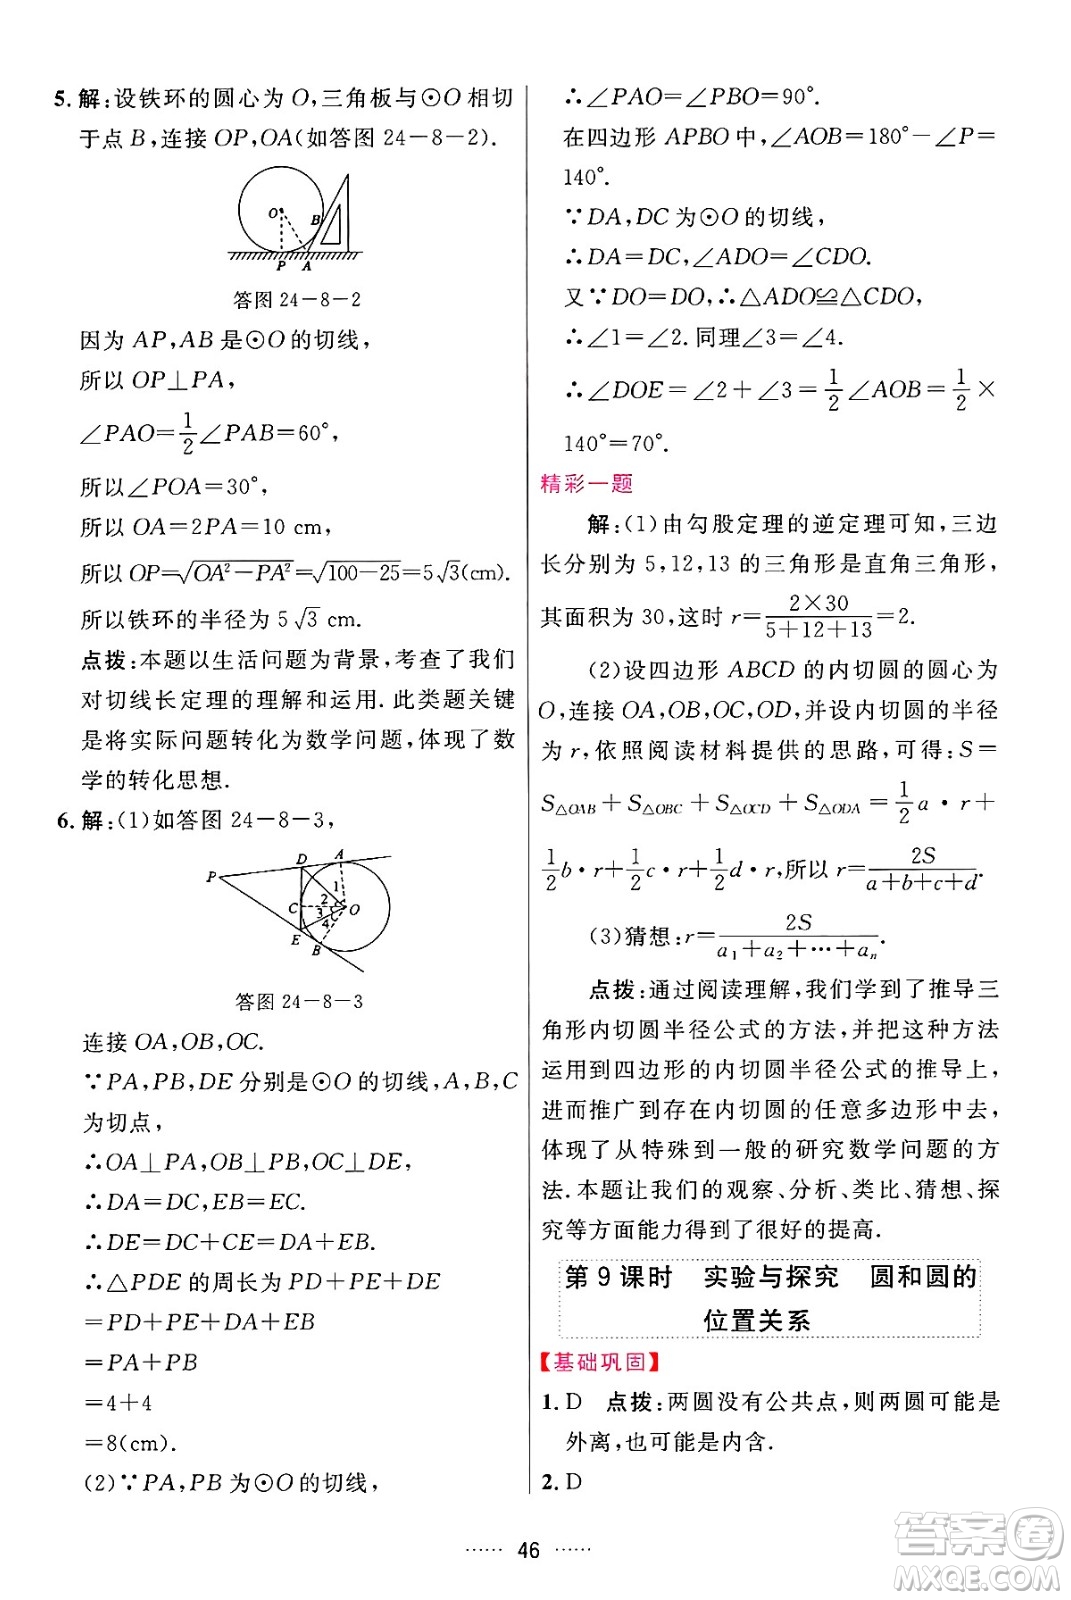 5. 解:设铁环的圆心为 O,三角板与⊙O 相切
于点 B,连接 OP,OA(如答图 24-8-2).
O
B
P A
答图 24-8-2
因为 AP,AB 是⊙O 的切线,
所以 OP⊥PA,
∠PAO=1/2∠PAB=60°,
所以∠POA=30°,
所以 OA=2PA=10 cm,
所以 OP=√(OA²-PA²)=√(100-25)=5√3(cm).
所以铁环的半径为 5√3 cm.
点拨:本题以生活问题为背景,考查了我们
对切线长定理的理解和运用. 此类题关键
是将实际问题转化为数学问题,体现了数
学的转化思想.
6. 解:(1)如答图 24-8-3,
D A
P
1
C 2
3 O
4
E
B
答图 24-8-3
连接 OA,OB,OC.
∵PA,PB,DE 分别是⊙O 的切线,A,B,C
为切点,
∴OA⊥PA,OB⊥PB,OC⊥DE,
∴DA=DC,EB=EC.
∴DE=DC+CE=DA+EB.
∴△PDE 的周长为 PD+PE+DE
=PD+PE+DA+EB
=PA+PB
=4+4
=8(cm).
(2)∵PA,PB为⊙O 的切线,
∴∠PAO=∠PBO=90°.
在四边形 APBO 中,∠AOB=180°-∠P=
140°.
∵DA,DC 为⊙O 的切线,
∴DA=DC,∠ADO=∠CDO.
又∵DO=DO,∴△ADO≌△CDO,
∴∠1=∠2.同理∠3=∠4.
∴∠DOE=∠2+∠3=1/2∠AOB=1/2×
140°=70°.
精彩一题
解:(1)由勾股定理的逆定理可知,三边
长分别为 5,12,13 的三角形是直角三角形,
其面积为 30,这时 r=(2×30)/(5+12+13)=2.
(2)设四边形 ABCD 的内切圆的圆心为
O,连接 OA,OB,OC,OD,并设内切圆的半径
为 r,依照阅读材料提供的思路,可得:S=
S△OAB+S△OBC+S△OCD+S△ODA=1/2a·r+
1/2b·r+1/2c·r+1/2d·r,所以 r=2S/(a+b+c+d).
(3)猜想:r=2S/(a₁+a₂+…+aₙ).
点拨:通过阅读理解,我们学到了推导三
角形内切圆半径公式的方法,并把这种方法
运用到四边形的内切圆半径公式的推导上,
进而推广到存在内切圆的任意多边形中去,
体现了从特殊到一般的研究数学问题的方
法.本题让我们的观察、分析、类比、猜想、探
究等方面能力得到了很好的提高.
第 9 课时 实验与探究 圆和圆的
位置关系
【基础巩固】
1. D 点拨:两圆没有公共点,则两圆可能是
外离,也可能是内含.
2. D
······ 46 ······
答案圈
MXQE.COM